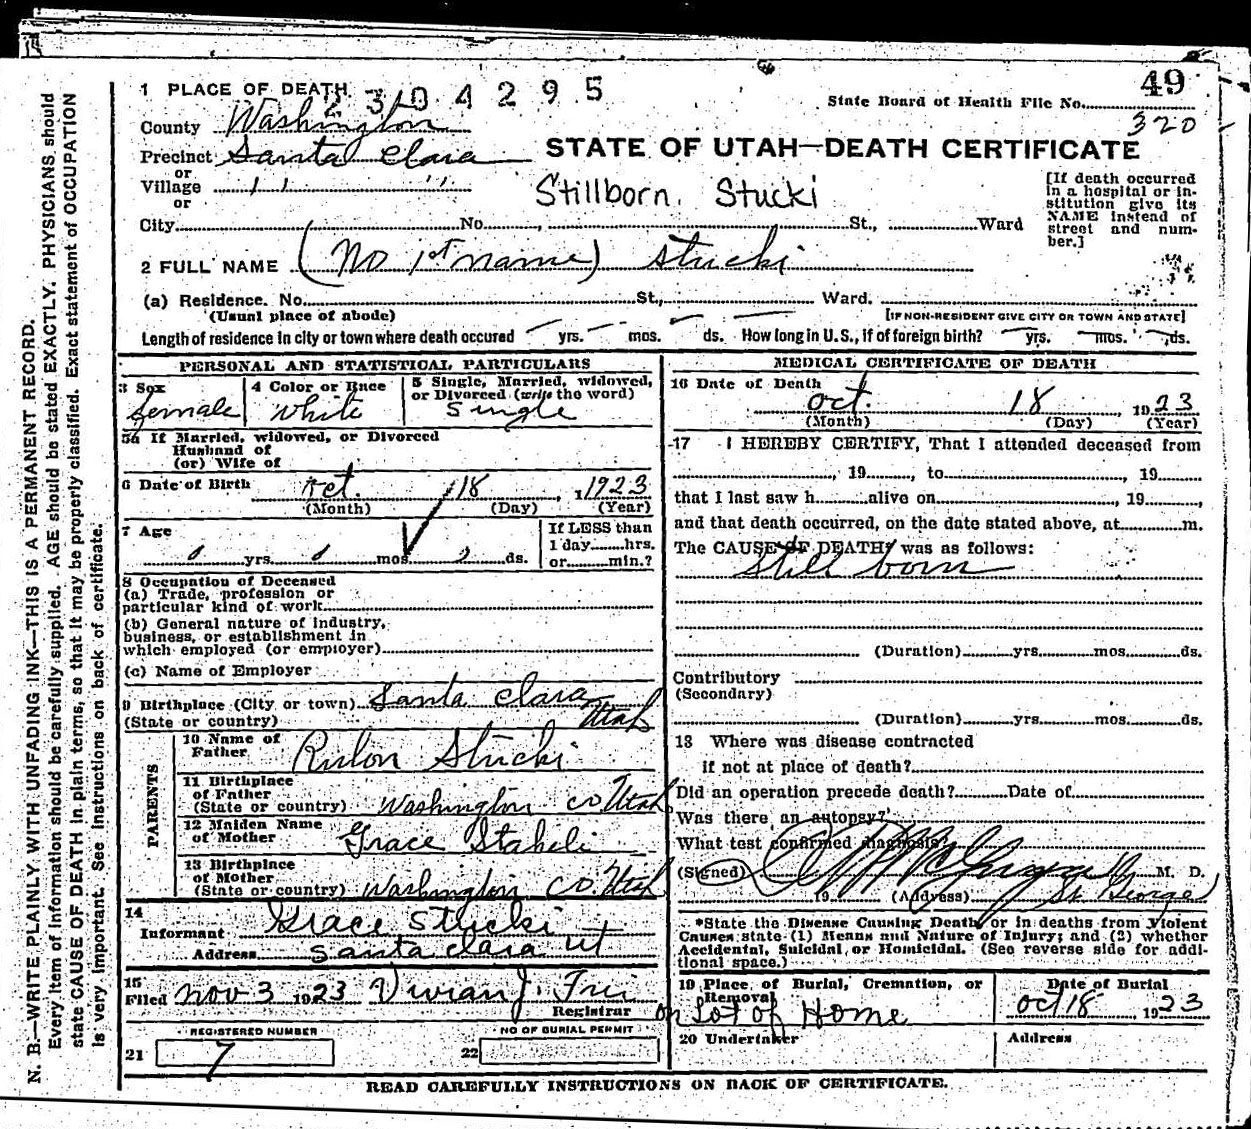 49
1 PLACE OF DEATH
2304295
State Board of Health File No.
320
County Washington
Precinct Santa Clara
or
Village " "
or
STATE OF UTAH—DEATH CERTIFICATE
Stillborn Stucki
City No. St., Ward
[If death occurred in a hospital or institution give its NAME instead of street and number.]
2 FULL NAME (No 1st name) Stucki
(a) Residence. No. St., Ward.
(Usual place of abode)
[IF NON-RESIDENT GIVE CITY OR TOWN AND STATE]
Length of residence in city or town where death occured — yrs. — mos. — ds. How long in U.S., if of foreign birth? — yrs. — mos. — ds.
PERSONAL AND STATISTICAL PARTICULARS
3 Sex
female
4 Color or Race
White
5 Single, Married, widowed,
or Divorced (write the word)
Single
5a If Married, widowed, or Divorced
Husband of
(or) Wife of
6 Date of Birth Oct. 18, 1923
(Month) (Day) (Year)
7 Age
0 yrs. 0 mos. ds.
If LESS than
1 day hrs.
or min.?
8 Occupation of Deceased
(a) Trade, profession or
particular kind of work
(b) General nature of industry,
business, or establishment in
which employed (or employer)
(c) Name of Employer
9 Birthplace (City or town) Santa Clara
(State or country) Utah
PARENTS
10 Name of
Father Rulon Stucki
11 Birthplace
of Father
(State or country) Washington Co. Utah
12 Maiden Name
of Mother Grace Staheli
13 Birthplace
of Mother
(State or country) Washington Co. Utah
14
Informant Grace Stucki
Address Santa Clara Ut
15
Filed Nov 3 1923 Vivian J. Frei
Registrar
REGISTERED NUMBER
21 7
NO OF BURIAL PERMIT
22
MEDICAL CERTIFICATE OF DEATH
16 Date of Death
Oct. 18, 1923
(Month) (Day) (Year)
17 I HEREBY CERTIFY, That I attended deceased from
, 19 , to , 19
that I last saw h alive on , 19 ,
and that death occurred, on the date stated above, at m.
The CAUSE OF DEATH* was as follows:
Still born
(Duration) yrs. mos. ds.
Contributory
(Secondary)
(Duration) yrs. mos. ds.
18 Where was disease contracted
if not at place of death?
Did an operation precede death? Date of
Was there an autopsy?
What test confirmed diagnosis?
(Signed) McGregor M. D.
19 (Address) St. George
*State the Disease Causing Death, or in deaths from Violent
Causes state (1) Means and Nature of Injury; and (2) whether
Accidental, Suicidal, or Homicidal. (See reverse side for addi-
tional space.)
19 Place of Burial, Cremation, or
Removal
on Lot of Home
Date of Burial
Oct 18, 1923
20 Undertaker
Address
READ CAREFULLY INSTRUCTIONS ON BACK OF CERTIFICATE.
N. B.—WRITE PLAINLY WITH UNFADING INK—THIS IS A PERMANENT RECORD.
Every item of information should be carefully supplied. AGE should be stated EXACTLY. PHYSICIANS should
state CAUSE OF DEATH in plain terms, so that it may be properly classified. Exact statement of OCCUPATION
is very important. See instructions on back of certificate.